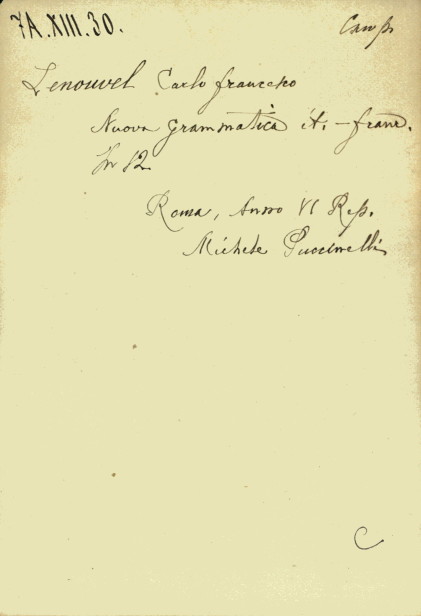 7A.XIII.30.
Camp.
Lenouvel Carlo francesco
Nuova grammatica it. - franc.
In 12
Roma, Anno VI Rep.
Michele Puccinelli
C